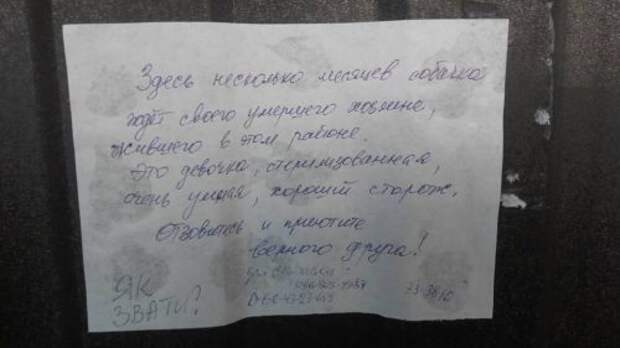 Здесь несколько месяцев собачка
ждёт своего умершего хозяина,
жившего в этом районе.
Это девочка, стерилизованная,
очень умная, хороший сторож.
Отзовитесь и приютите
верного друга!
ЯК
ЗВАТИ?